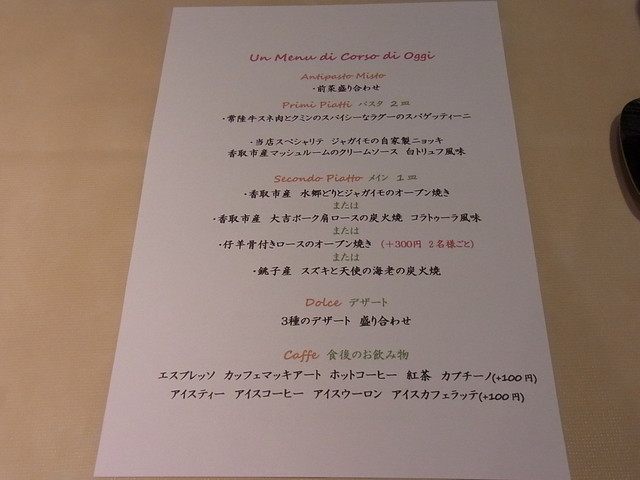 Un Menu di Corso di Oggi
Antipasto Misto
・前菜盛り合わせ
Primi Piatti パスタ 2皿
・常陸牛スネ肉とクミンのスパイシーなラグーのスパゲッティーニ
・当店スペシャリテ ジャガイモの自家製ニョッキ
香取市産マッシュルームのクリームソース 白トリュフ風味
Secondo Piatto メイン 1皿
・香取市産 水郷どりとジャガイモのオーブン焼き
または
・香取市産 大吉ポーク肩ロースの炭火焼 コラトゥーラ風味
または
・仔羊骨付きロースのオーブン焼き (+300円 2名様ごと)
または
・銚子産 スズキと天使の海老の炭火焼
Dolce デザート
3種のデザート 盛り合わせ
Caffe 食後のお飲み物
エスプレッソ カッフェマッキアート ホットコーヒー 紅茶 カプチーノ(+100円)
アイスティー アイスコーヒー アイスウーロン アイスカフェラッテ(+100円)